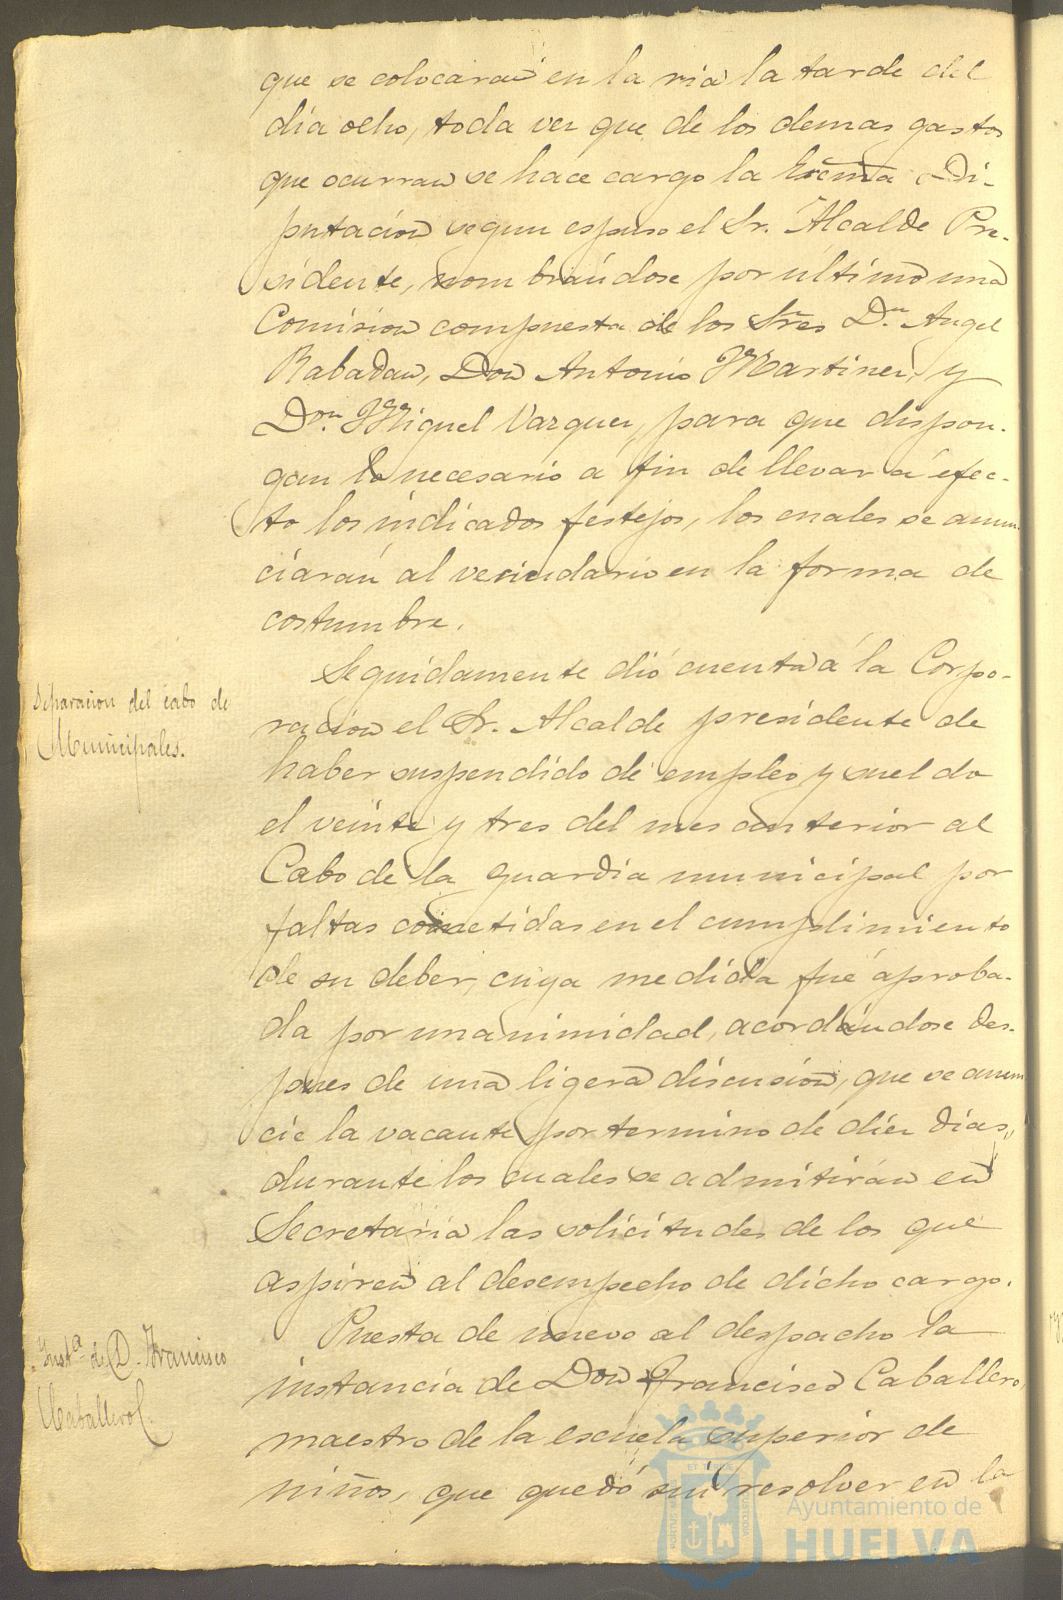 que se colocaran en la ria la tarde del
dia ocho, toda vez que de los demas gastos
que ocurran se hace cargo la Excma Di-
putacion segun espuso el Sr. Alcalde Pre-
sidente, nombrándose por último una
Comision compuesta de los Sres Dn. Angel
Rabadan, Don Antonio Martinez, y
Don. Miguel Vazquez, para que dispon-
gan lo necesario a fin de llevar a efec-
to los indicados festejos, los cuales se anun-
ciarán al vecindario en la forma de
costumbre.
Separacion del cabo de
Municipales.
Seguidamente dió cuenta á la Corpo-
racion el Sr. Alcalde presidente de
haber suspendido de empleo y sueldo
el veinte y tres del mes anterior al
Cabo de la guardia municipal por
faltas cometidas en el cumplimiento
de su deber, cuya medida fué aproba-
da por unanimidad, acordándose des-
pues de una ligera discusion, que se anun-
cie la vacante por termino de diez dias,
durante los cuales se admitirán en
Secretaria las solicitudes de los que
aspiren al desempecho de dicho cargo.
Insta. de D. Francisco
Caballero.
Puesta de nuevo al despacho la
instancia de Don Francisco Caballero,
maestro de la escuela superior de
niños, que quedó sin resolver en la
Ayuntamiento de
HUELVA